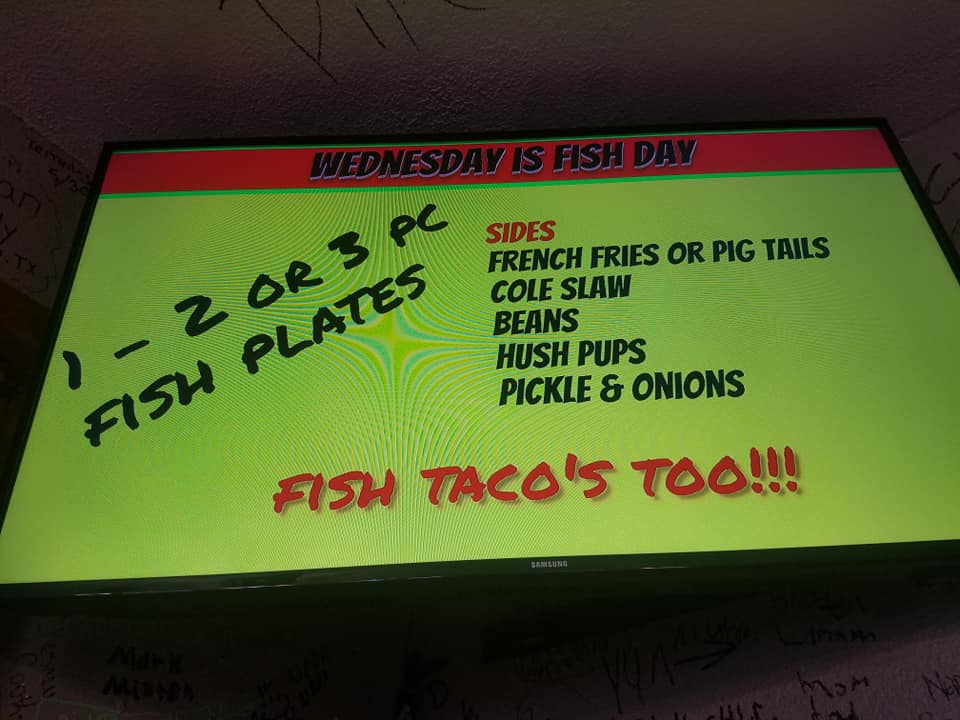 WEDNESDAY IS FISH DAY
1 - 2 OR 3 PC
FISH PLATES
SIDES
FRENCH FRIES OR PIG TAILS
COLE SLAW
BEANS
HUSH PUPS
PICKLE & ONIONS
FISH TACO'S TOO!!!
SAMSUNG
Mark
Mom